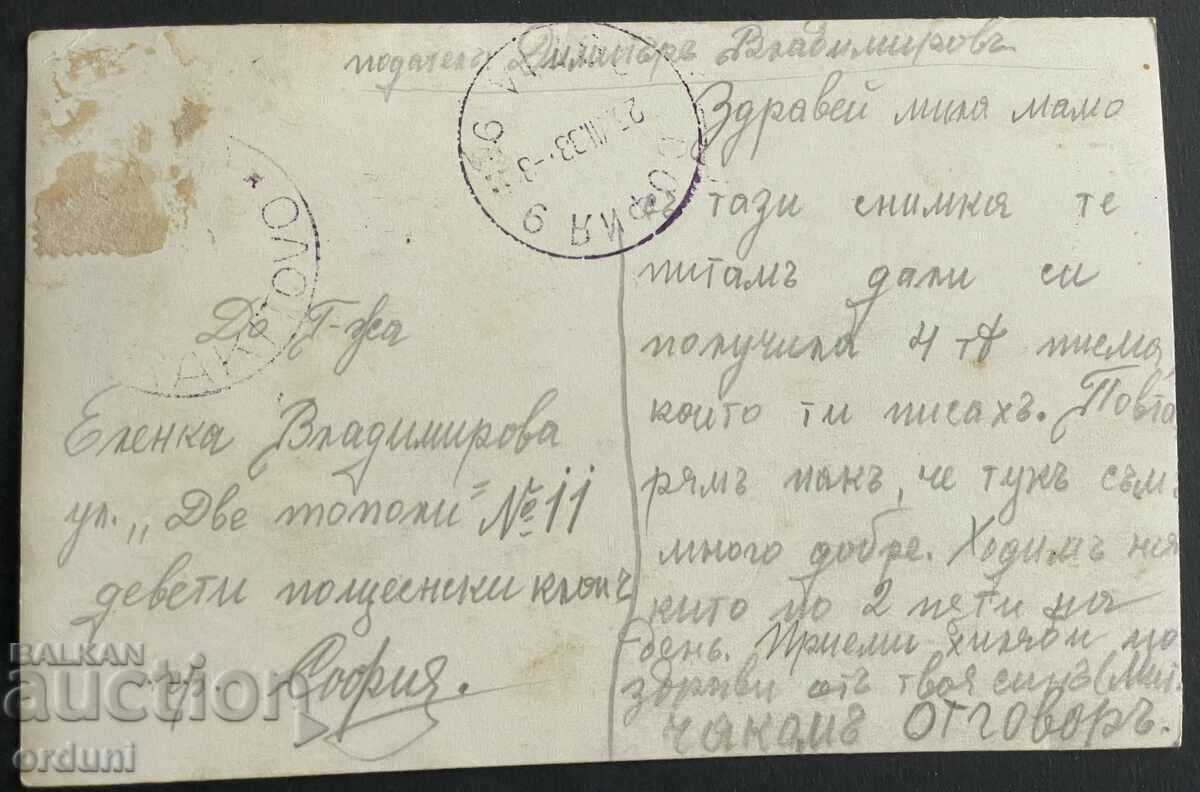 подателъ Димитъръ Владимировъ
Здравей мила мамо
съ тази снимка те
питамъ дали си
получила 4 тѣ писма,
които ти писахъ. Повта
рямъ пакъ, че тукъ съмъ
много добре. Ходимъ
по 2 пѫти на
день. Приеми хиляди по
здрави отъ твоя синъ (Мит.
чакамъ ОТГОВОРЪ.
До Г-жа
Еленка Владимирова
ул. „Две тополи" № 11
девети пощенски клонъ
гр. София.
СОФИЯ 9
33.-3
BALKAN
auction
orduni